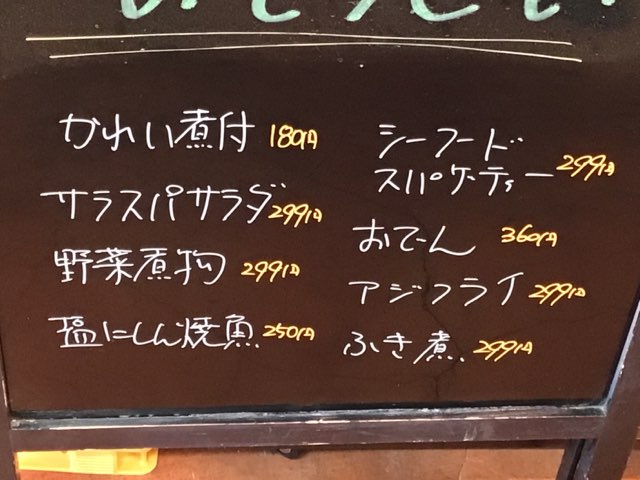 かれい煮付 180円
サラスパサラダ 299円
野菜煮物 299円
塩にしん焼魚 250円
シーフード
スパゲーティー 299円
おでーん 360円
アジフライ 299円
ふき煮 299円